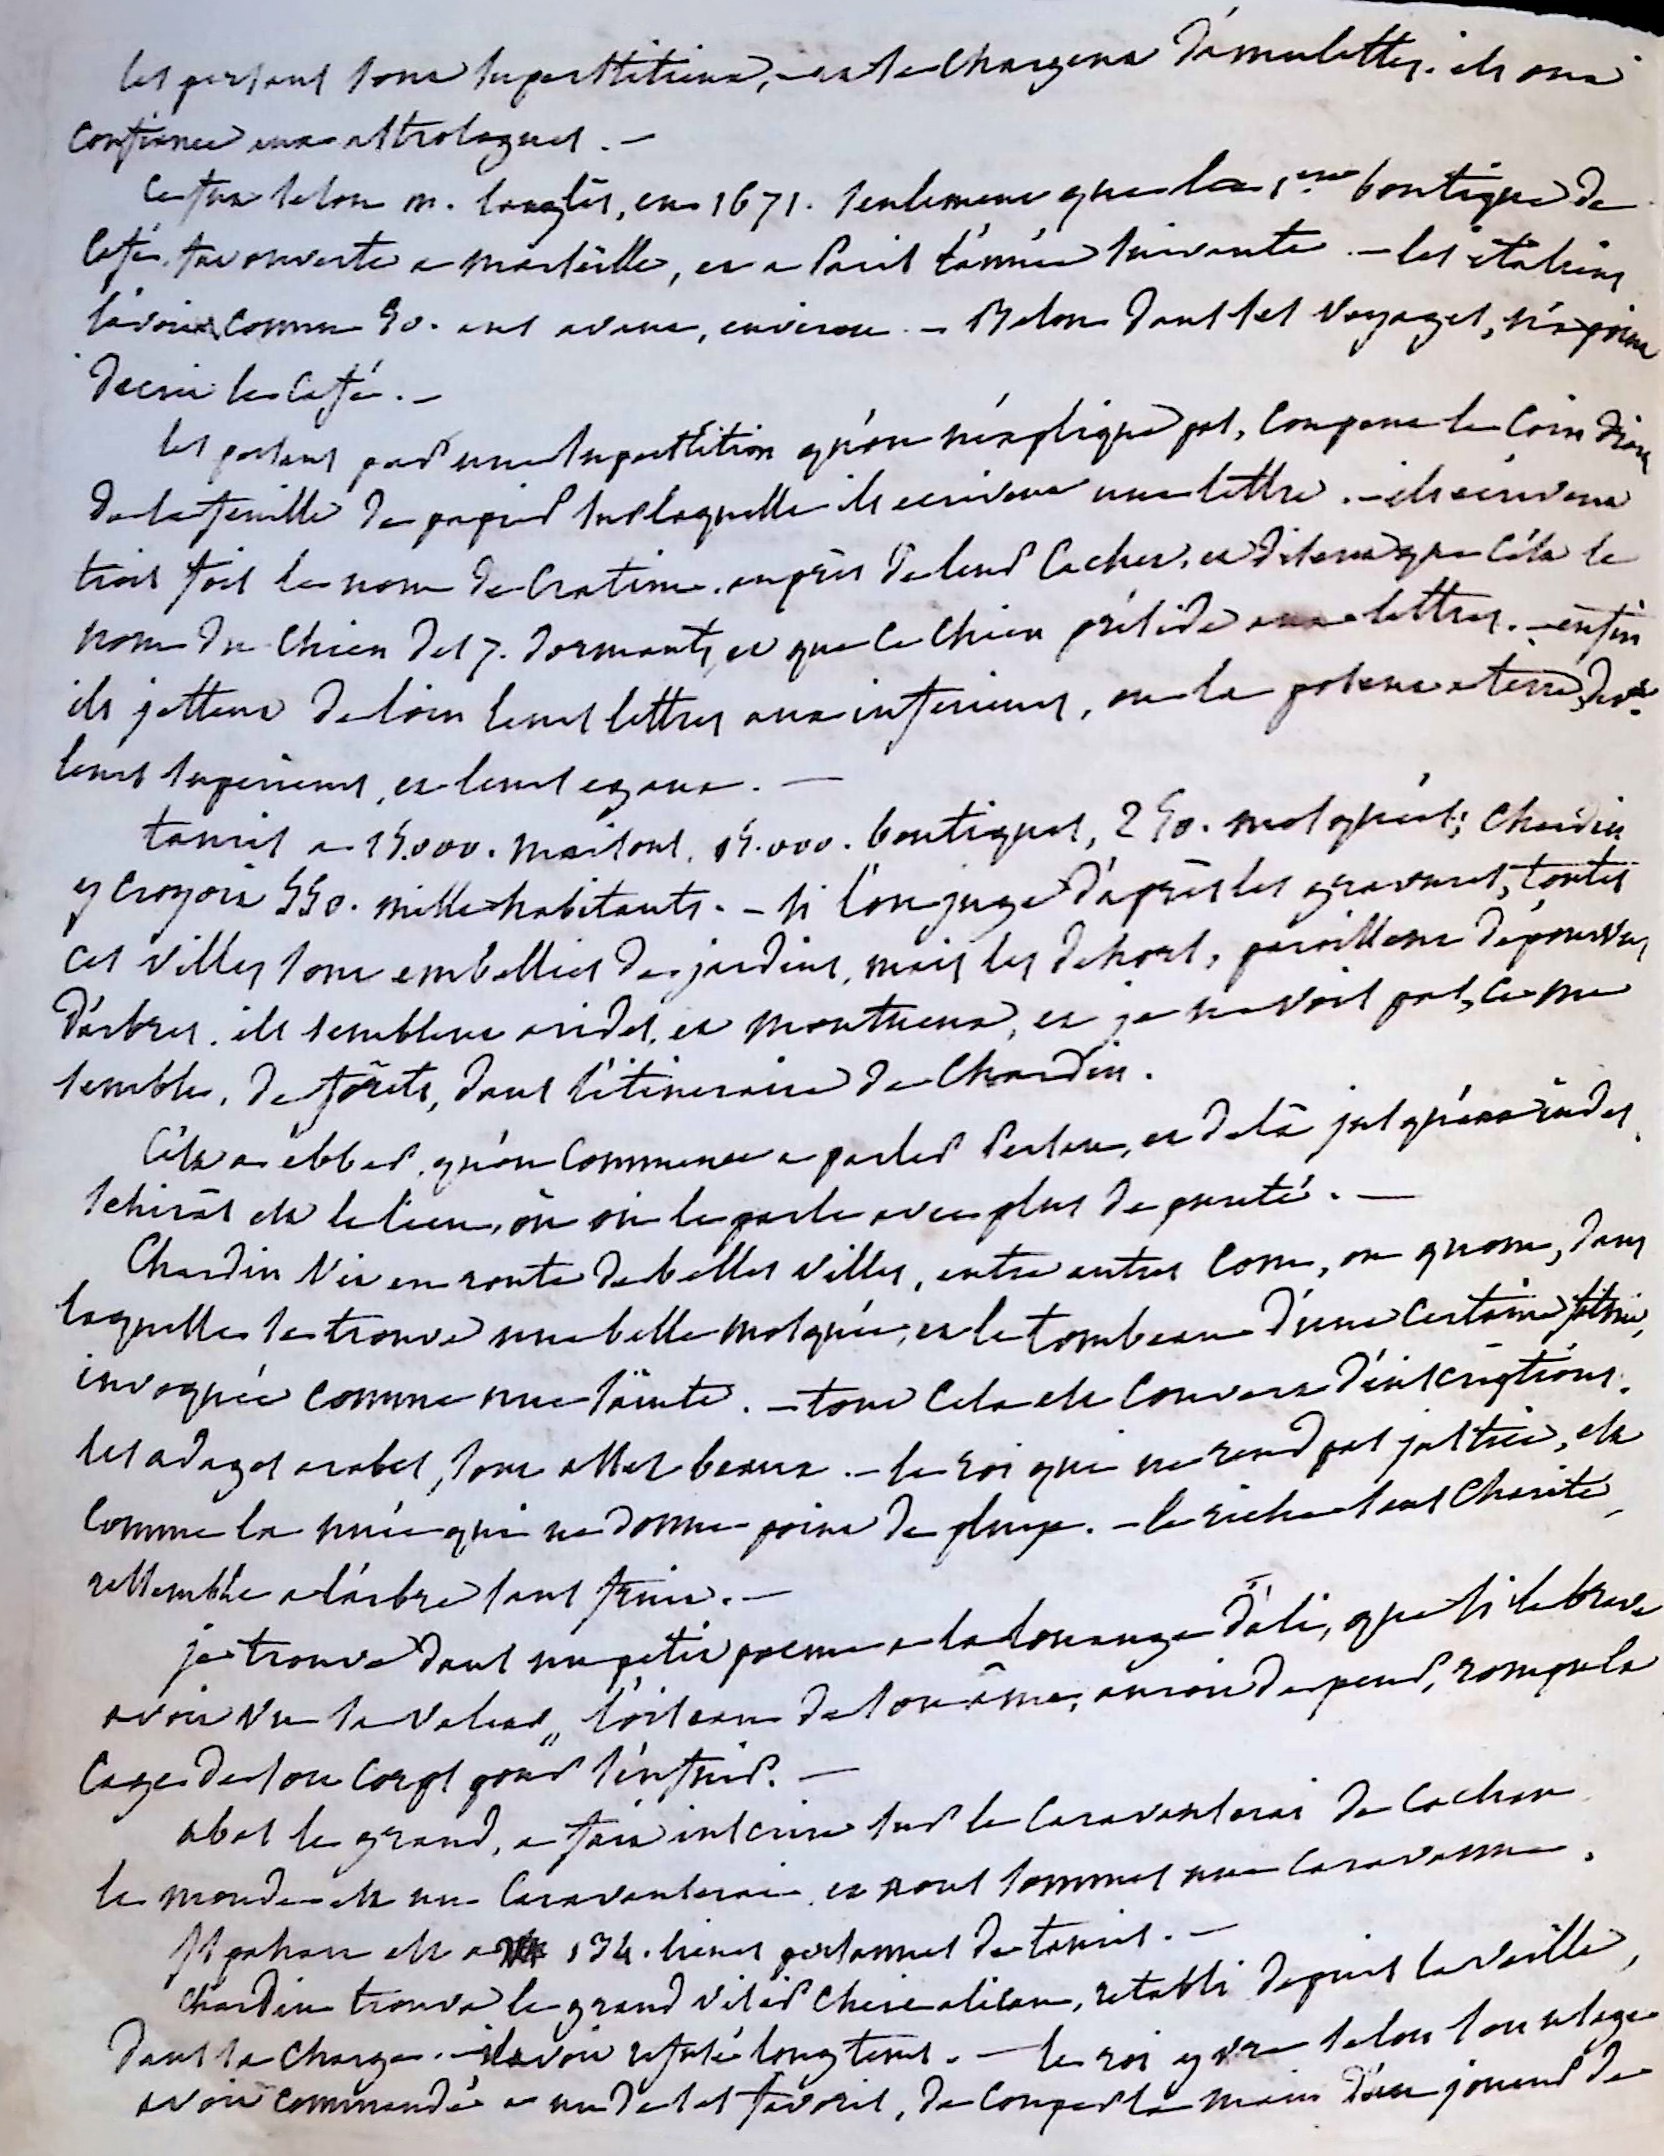 les persans sont superstitieux, et se chargent d'amulettes. ils ont
confiance aux astrologues. -
Ce fut selon m. langlès, en 1671. seulement que la 1ere boutique de
Café, fut ouverte a marseille, et a Paris l'année suivante. - les italiens
l'avoient connu 50. ans avant, environ. - Belon dans ses voyages, n'a point
decrit le Café. -
les persans par une superstition qu'on n'explique pas, coupent le Coin d'en
de la feuille de papier sur laquelle ils ecrivent une lettre. - ils ecrivent
trois fois le nom de Cratim. auprès de leur Cachet, et disent que c'est le
nom du Chien des 7. dormants, et que ce Chien préside aux lettres. - enfin
ils jettent de loin leurs lettres aux inferieurs, ou la posent a terre, devt
leurs superieurs, et leurs egaux. -
tauris a 15.000. maisons, 15.000. boutiques, 250. mosquées; Chardin
y croyoit 550. mille habitants. - si l'on juge d'après les gravures, toutes
ces villes sont embellies de jardins, mais les dehors, paroissent dépourvus
d'arbres. ils semblent arides, et montueux, et je ne vois pas, ce me
semble, de forêts, dans l'itineraire de Chardin.
C'est a ebber, qu'on commence a parler Persan, et delà jusqu'aux indes.
schirás est le lieu, où on le parle avec plus de pureté. -
Chardin vit en route de belles villes, entre autres Com, ou quom, dans
laquelle se trouve une belle mosquée, et le tombeau d'une certaine fatmé,
invoquée comme une sainte. - tout cela est couvert d'inscriptions.
les adages arabes, sont assez beaux. - le roi qui ne rend pas justice, est
comme la nuée qui ne donne point de pluye. - le riche sans charité,
ressemble a l'arbre sans fruit. -
je trouve dans un petit poeme a la louange d'ali, que si le brave
avoit vu sa valeur " l'oiseau de son âme, auroit de peur, rompu la
Cage de son Corps pour s'enfuir. -
abas le grand, a fait inscrire sur le Caravanserai de Cachan
le monde est un Caravanserai, et nous sommes une Caravanne.
Ispahan est a 134. lieues persannes de tauris. -
Chardin trouva le grand visir Cheic alican, retabli depuis la veille,
dans sa charge. - il avoit refusé longtems. - le roi yvre selon son usage
avoit commandé a un de ses favoris, de couper la main d'un joueur de